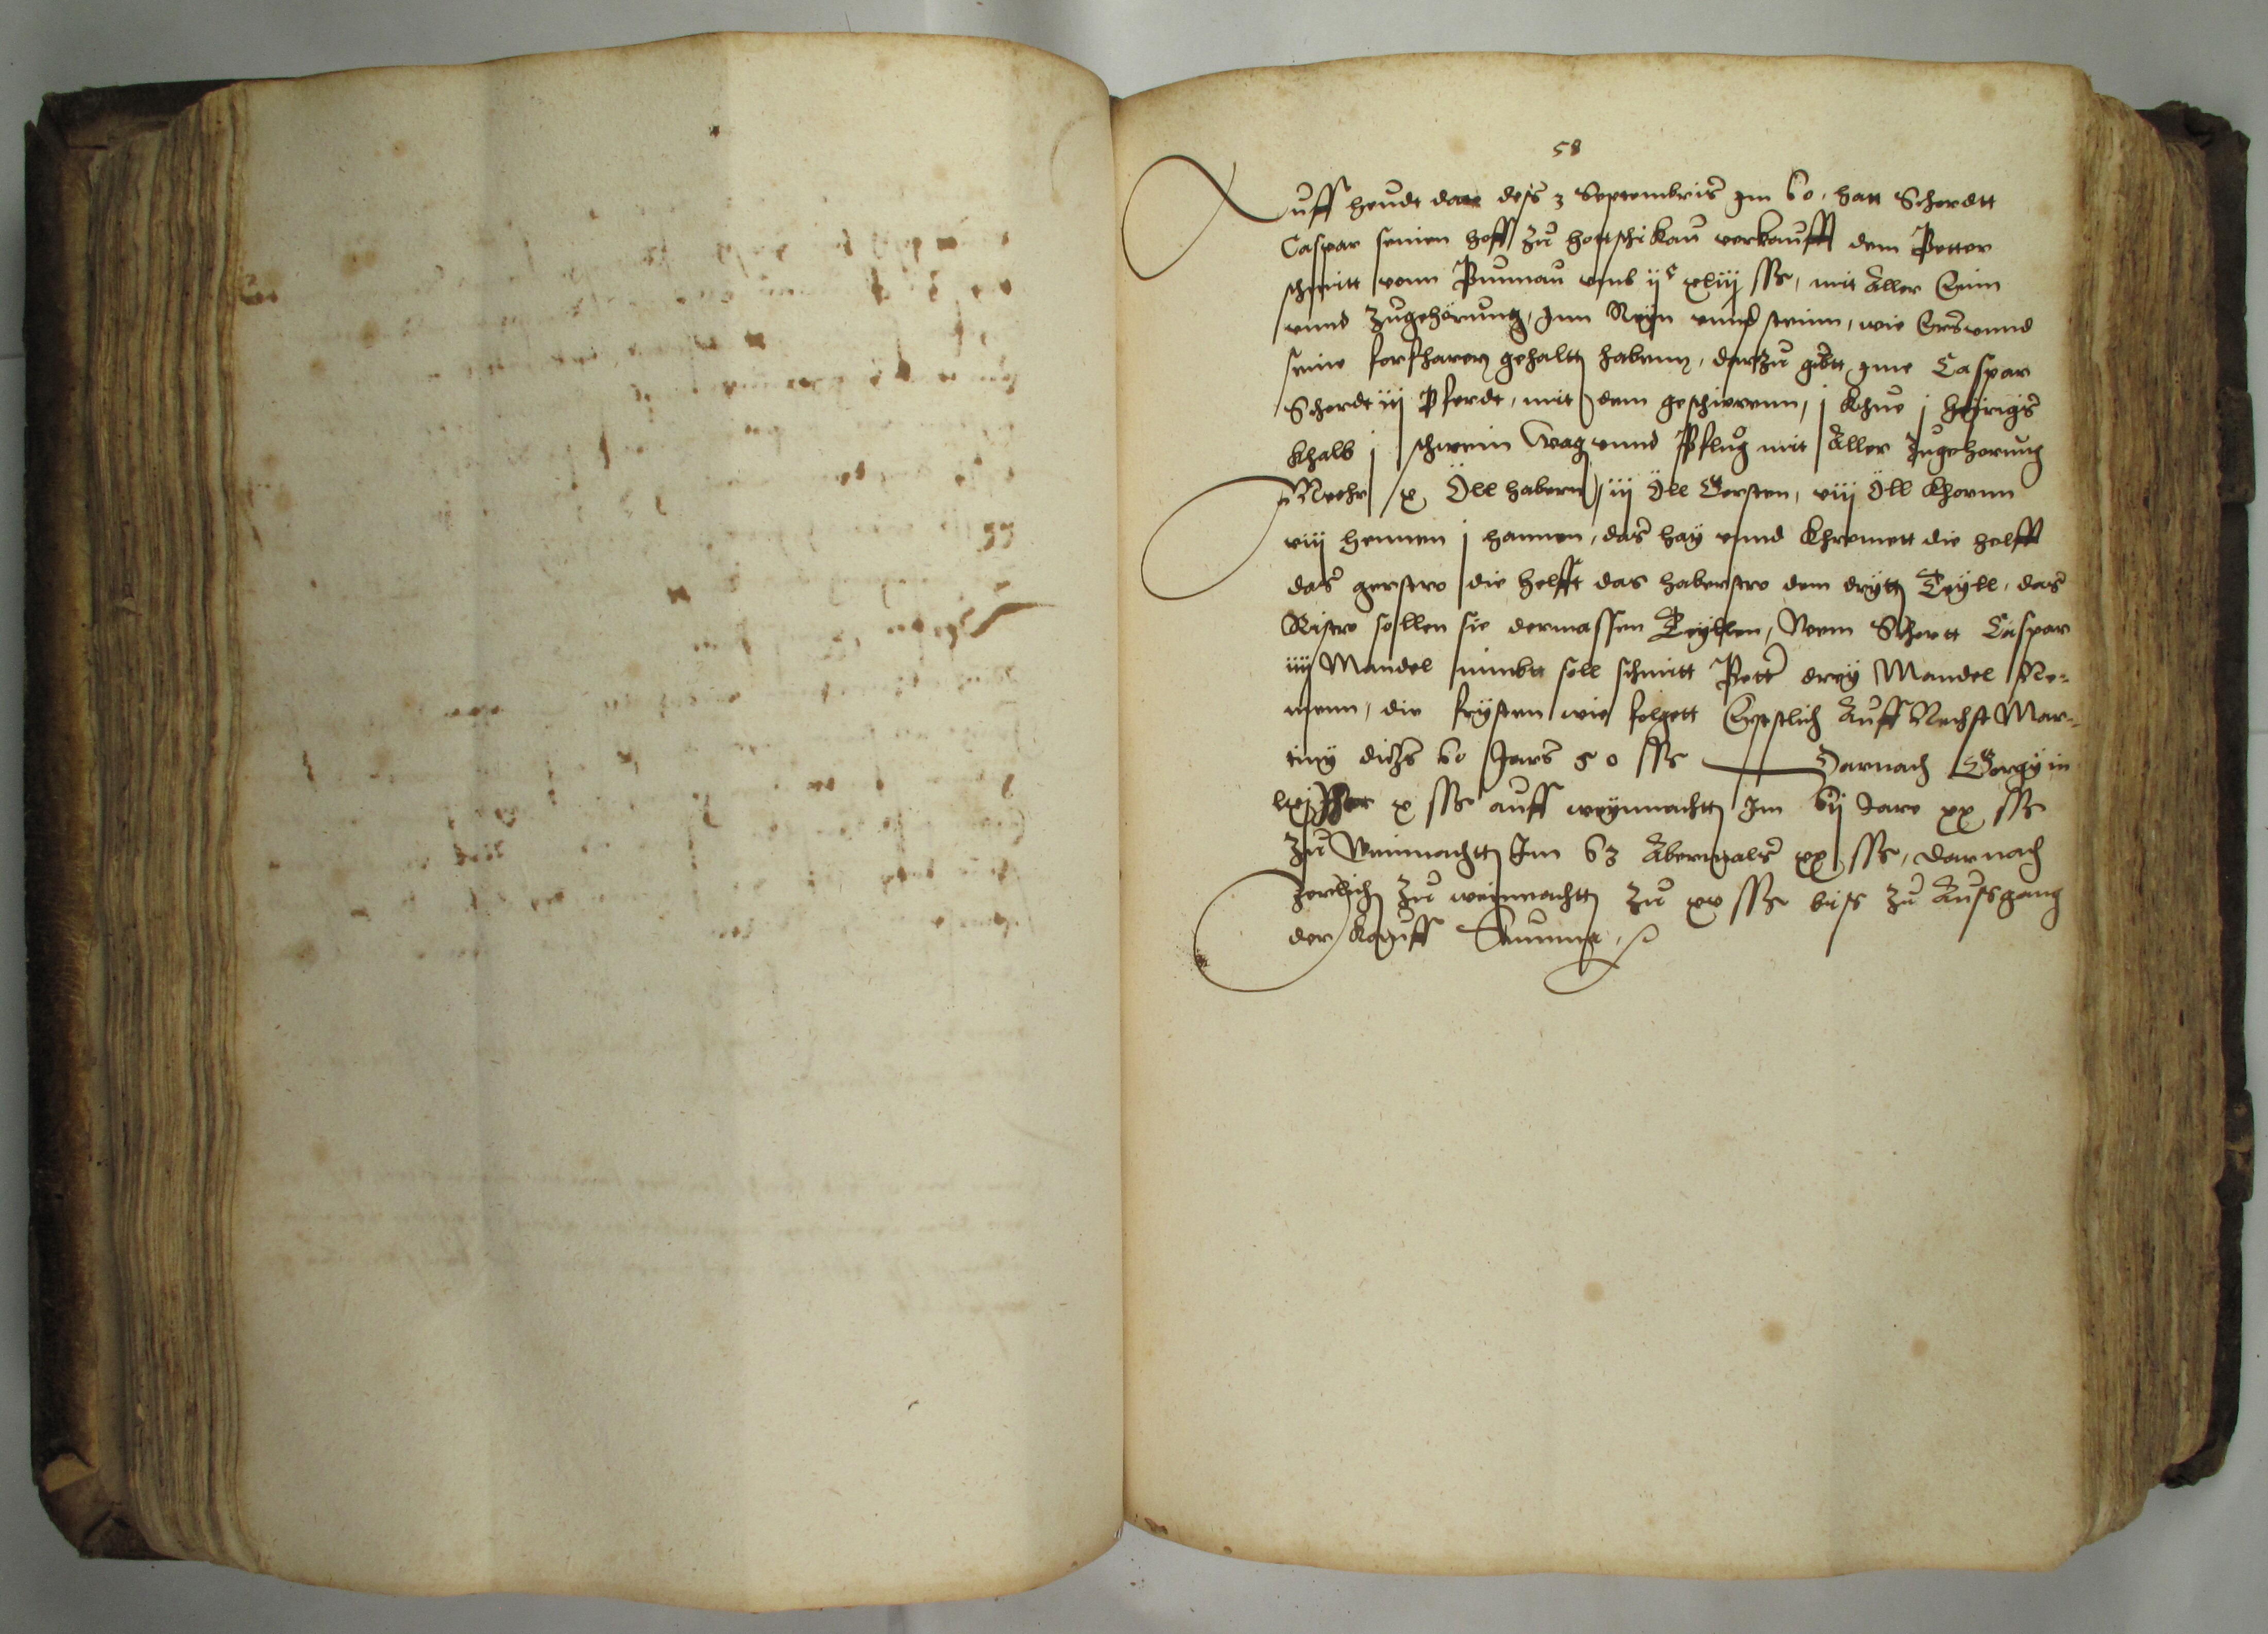 58
Auff heudt dato dess 3 Septembris jm 60. hatt Scherdtt
Caspar seinen hoff zu hottschikau verkaufft dem Petter
schmitt vonn Pumau umb ij c xliij ssr, mit Aller Einn
unnd Zugehörung, jnn Reyn unnd steinn, wie Ers unnd
seine forfharen gehaltt habenn, darzu gibtt jme Caspar
Scherdt iij Pferdt, mit dem geschirrenn, j Khue j heyrigs
khalb j schwein Wag unnd Pflug mit Aller Zugehorung
Mehr x Öll habern, iij Öll Gersten, viij Öll Khornn
viij hennen j hannen, das hay unnd Khromett die helfft
das gerstro die helfft das haberstro dem drytt Teyll, das
Ristro sollen sie dermassen Teyllen, Wenn Schertt Caspar
iiij Mandel nimbtt soll schmitt Petter drey Mandel Ne-
menn, die frysten wie folgett Erstlich Auff Nechst Mar-
tiny dises 60 Jars 50 ssr Darnach Georgy in
x ssr auff weynnachtt Im 62 Jare xx ssr
zu Weinnachtt Im 63 Abermals xx ssr, darnach
Jerlich zu weinnachtt zu xv ssr biss zu Aussgang
der Kauff Summa